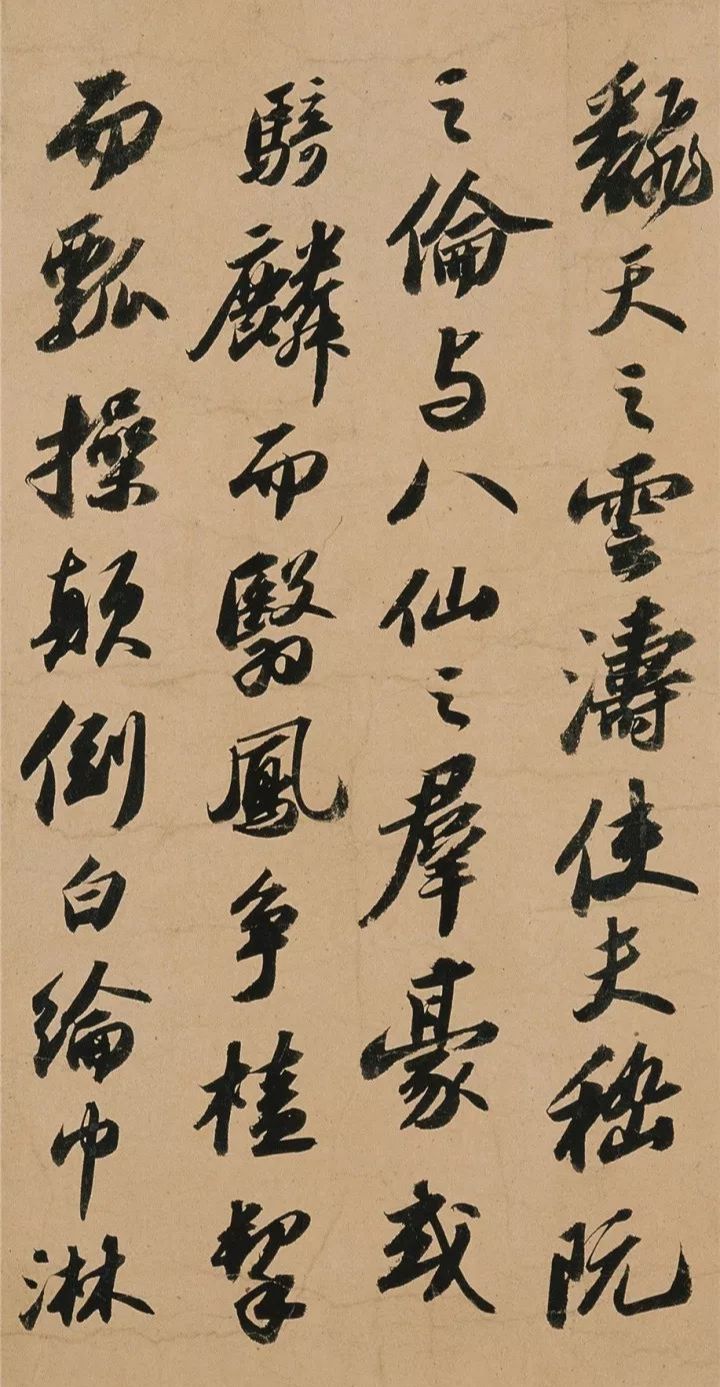 飜天之雲濤使夫嵇阮
之倫与八仙之羣豪或
騎麟而翳鳳争榼挈
而瓢操顛倒白綸巾淋